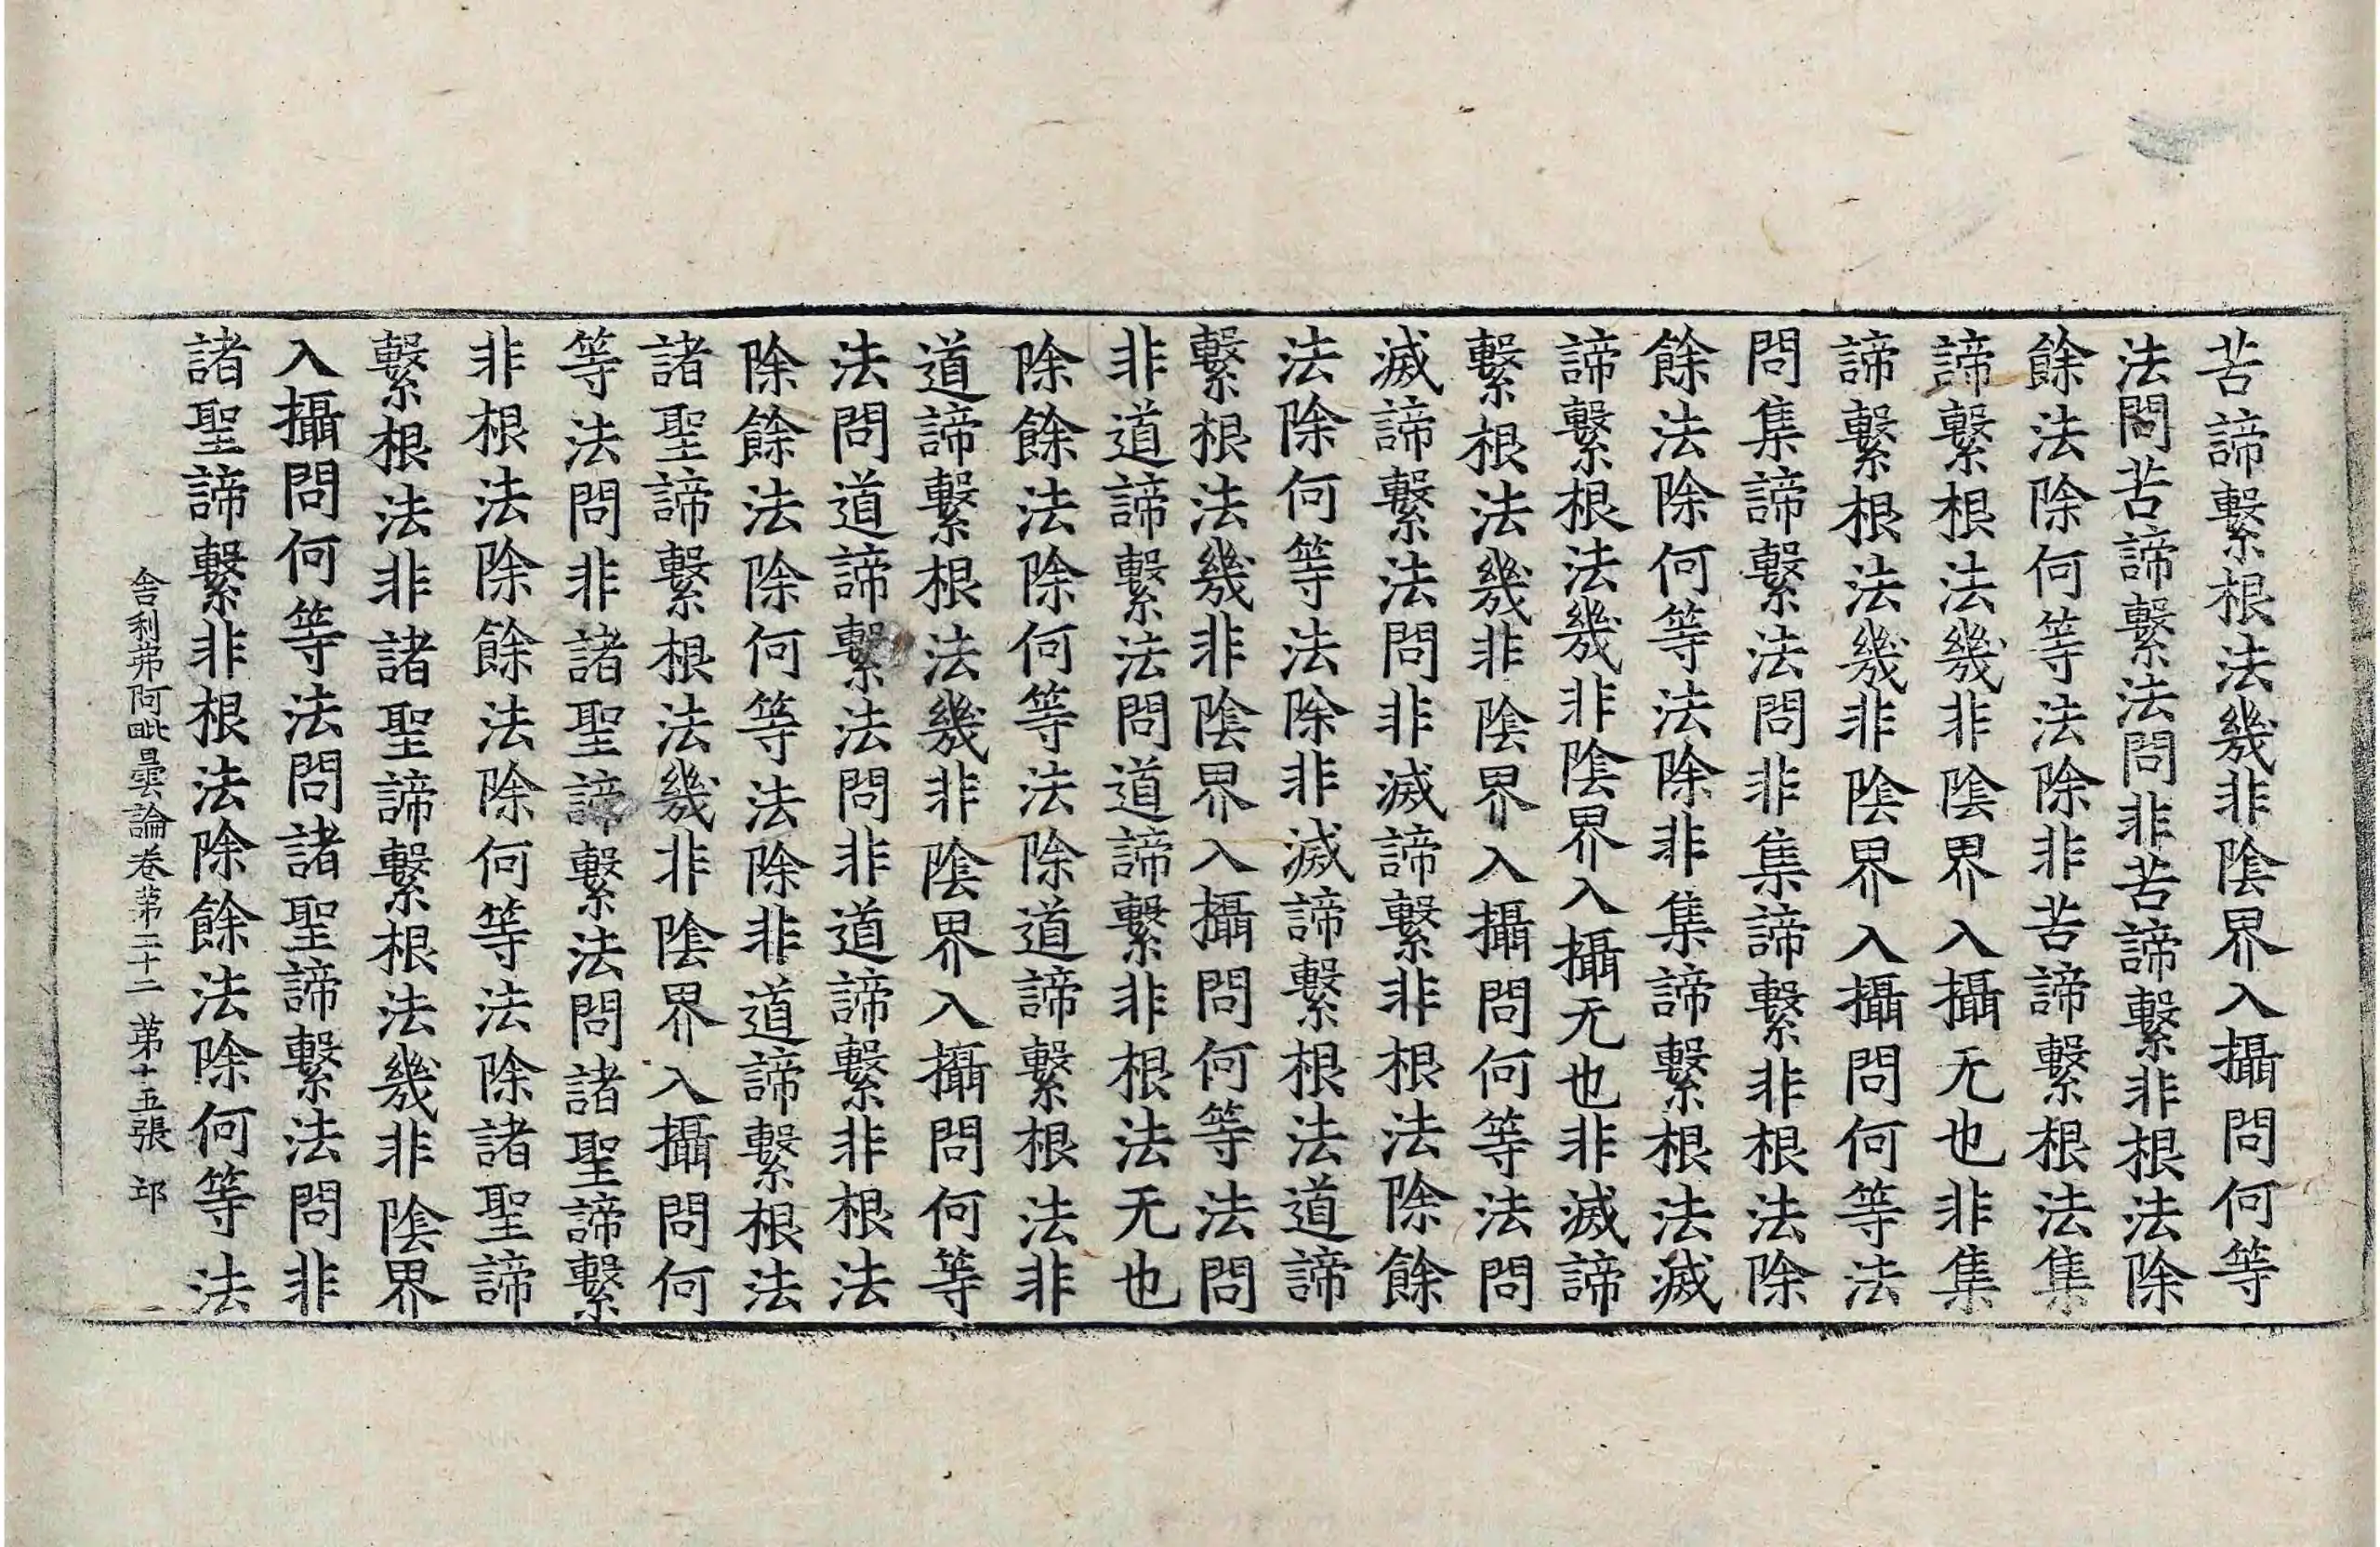 苦諦繫根法幾非陰界入攝問何等
法問苦諦繫法問非苦諦繫非根法除
餘法除何等法除非苦諦繫根法集
諦繫根法幾非陰界入攝无也非集
諦繫根法幾非陰界入攝問何等法
問集諦繫法問非集諦繫非根法除
餘法除何等法除非集諦繫根法滅
諦繫根法幾非陰界入攝无也非滅諦
繫根法幾非陰界入攝問何等法問
滅諦繫法問非滅諦繫非根法除餘
法除何等法除非滅諦繫根法道諦
繫根法幾非陰界入攝問何等法問
非道諦繫法問道諦繫非根法无也
除餘法除何等法除道諦繫根法非
道諦繫根法幾非陰界入攝問何等
法問道諦繫法問非道諦繫非根法
除餘法除何等法除非道諦繫根法
諸聖諦繫根法幾非陰界入攝問何
等法問非諸聖諦繫法問諸聖諦繫
非根法除餘法除何等法除諸聖諦
繫根法非諸聖諦繫根法幾非陰界
入攝問何等法問諸聖諦繫法問非
諸聖諦繫非根法除餘法除何等法
舍利弗阿毗曇論卷苐二十二 苐十五張 邱